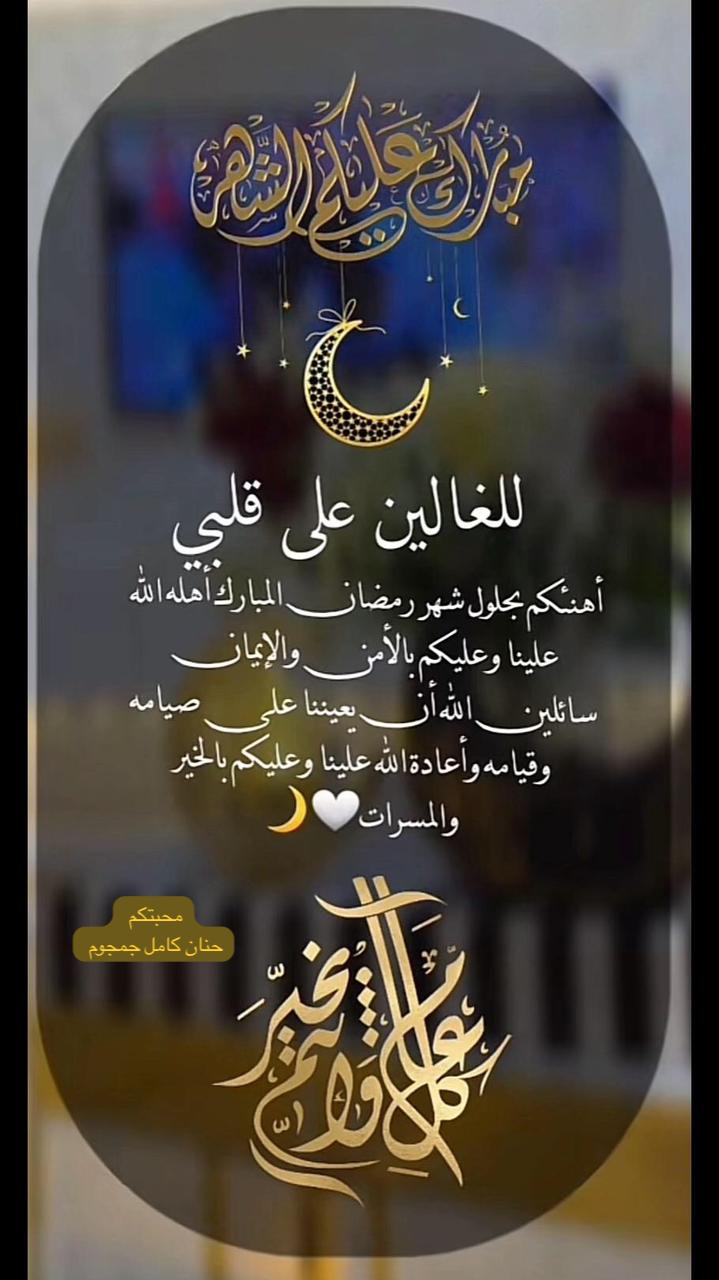 مبارك عليكم الشهر
للغالين على قلبي
أهنئكم بحلول شهر رمضان المبارك أهله الله
علينا وعليكم بالأمن والإيمان
سائلين الله أن يعيننا على صيامه
وقيامه وأعادة الله علينا وعليكم بالخير
والمسرات🤍🌙
محبتكم
حنان كامل جمجوم
كل عام وانتم بخير